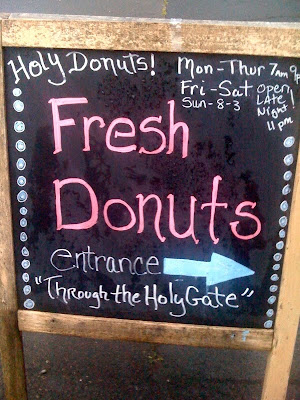 Holy Donuts!
Mon-Thur 7am 9p
Fri-Sat Open
Late
Night
11 pm
Sun-8-3
Fresh
Donuts
entrance
"Through the Holy Gate"